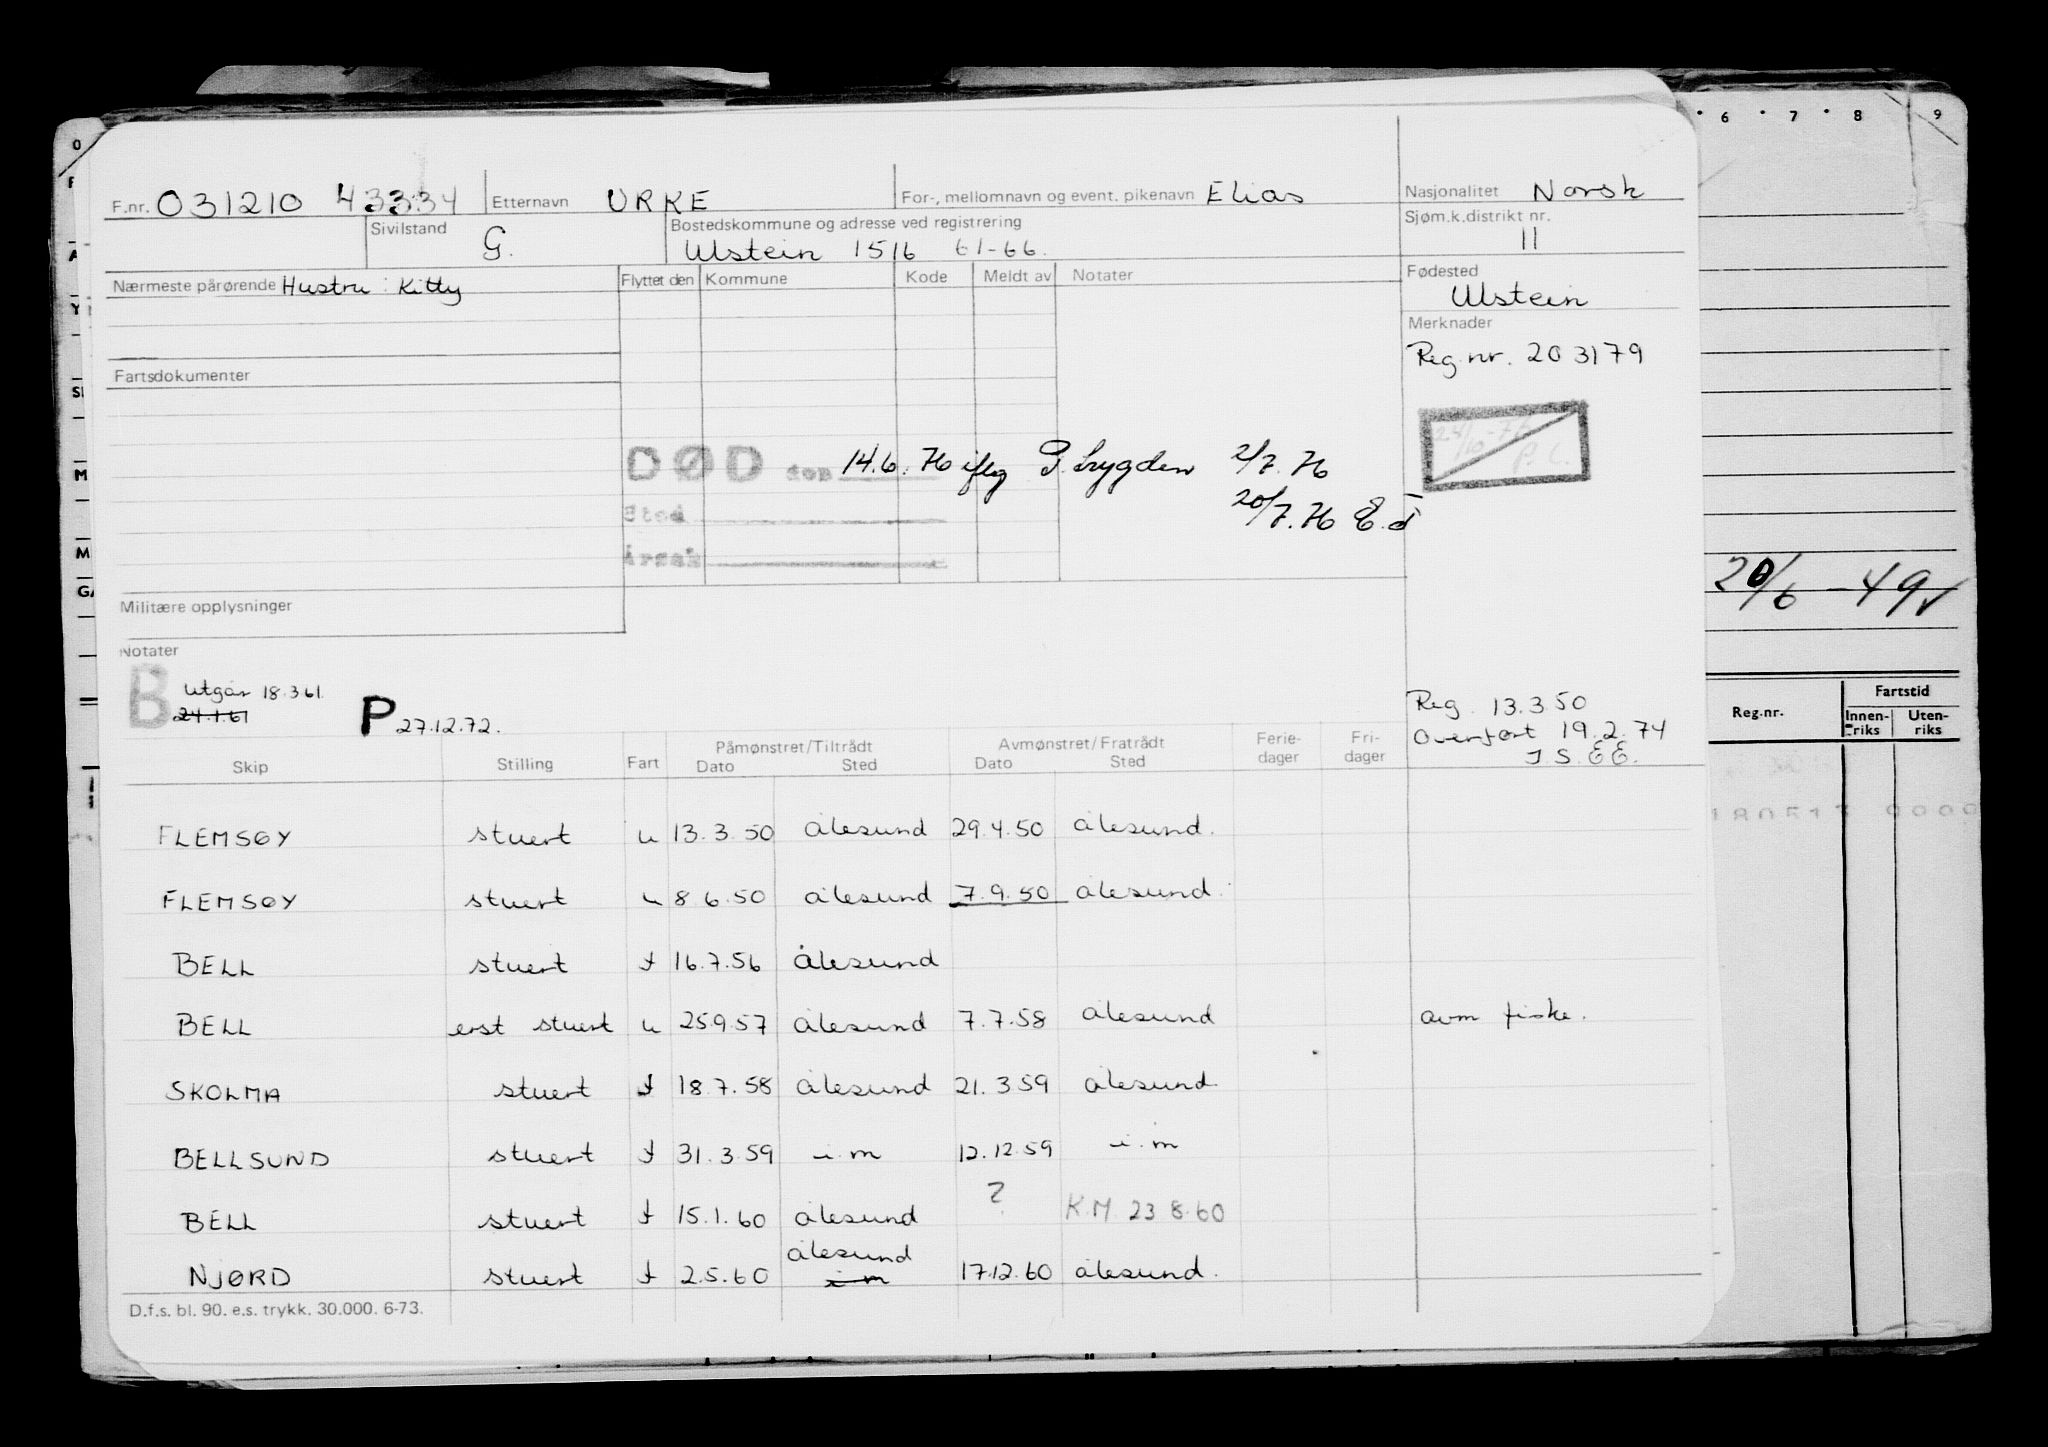 F.nr. 031210 43334 Etternavn URKE For-, mellomnavn og event. pikenavn Elias Nasjonalitet Norsk
Sivilstand G. Bostedskommune og adresse ved registrering Ulstein 1516 61-66. Sjøm.k.distrikt nr. 11
Nærmeste pårørende Hustru: Kitty Flyttet den Kommune Kode Meldt av Notater Fødested Ulstein
Merknader
Reg.nr. 203179
Fartsdokumenter
DØD den 14.6.76 iflg P. trygden 2/7.76
20/7.76
Sted
Årsak
Militære opplysninger
20/6-49
Notater
B Utgår 18.3.61.
24.1.61
P 27.12.72.
Reg. 13.3.50
Overført 19.2.74
Reg.nr. Fartstid
Innen-riks Uten-riks
Skip Stilling Fart Påmønstret/Tiltrådt Dato Sted Avmønstret/Fratrådt Dato Sted Ferie-dager Fri-dager
FLEMSØY stuert u 13.3.50 Ålesund 29.4.50 Ålesund.
FLEMSØY stuert u 8.6.50 Ålesund 7.9.50 Ålesund.
BELL stuert f 16.7.56 Ålesund
BELL erst stuert u 25.9.57 Ålesund 7.7.58 Ålesund avm fiske.
SKOLMA stuert f 18.7.58 Ålesund 21.3.59 Ålesund.
BELLSUND stuert f 31.3.59 i.m 12.12.59 i.m
BELL stuert f 15.1.60 Ålesund ? K.M. 23.8.60
NJØRD stuert f 2.5.60 Ålesund i m 17.12.60 Ålesund.
D.f.s. bl. 90. e.s. trykk. 30.000. 6-73.
6 7 8 9